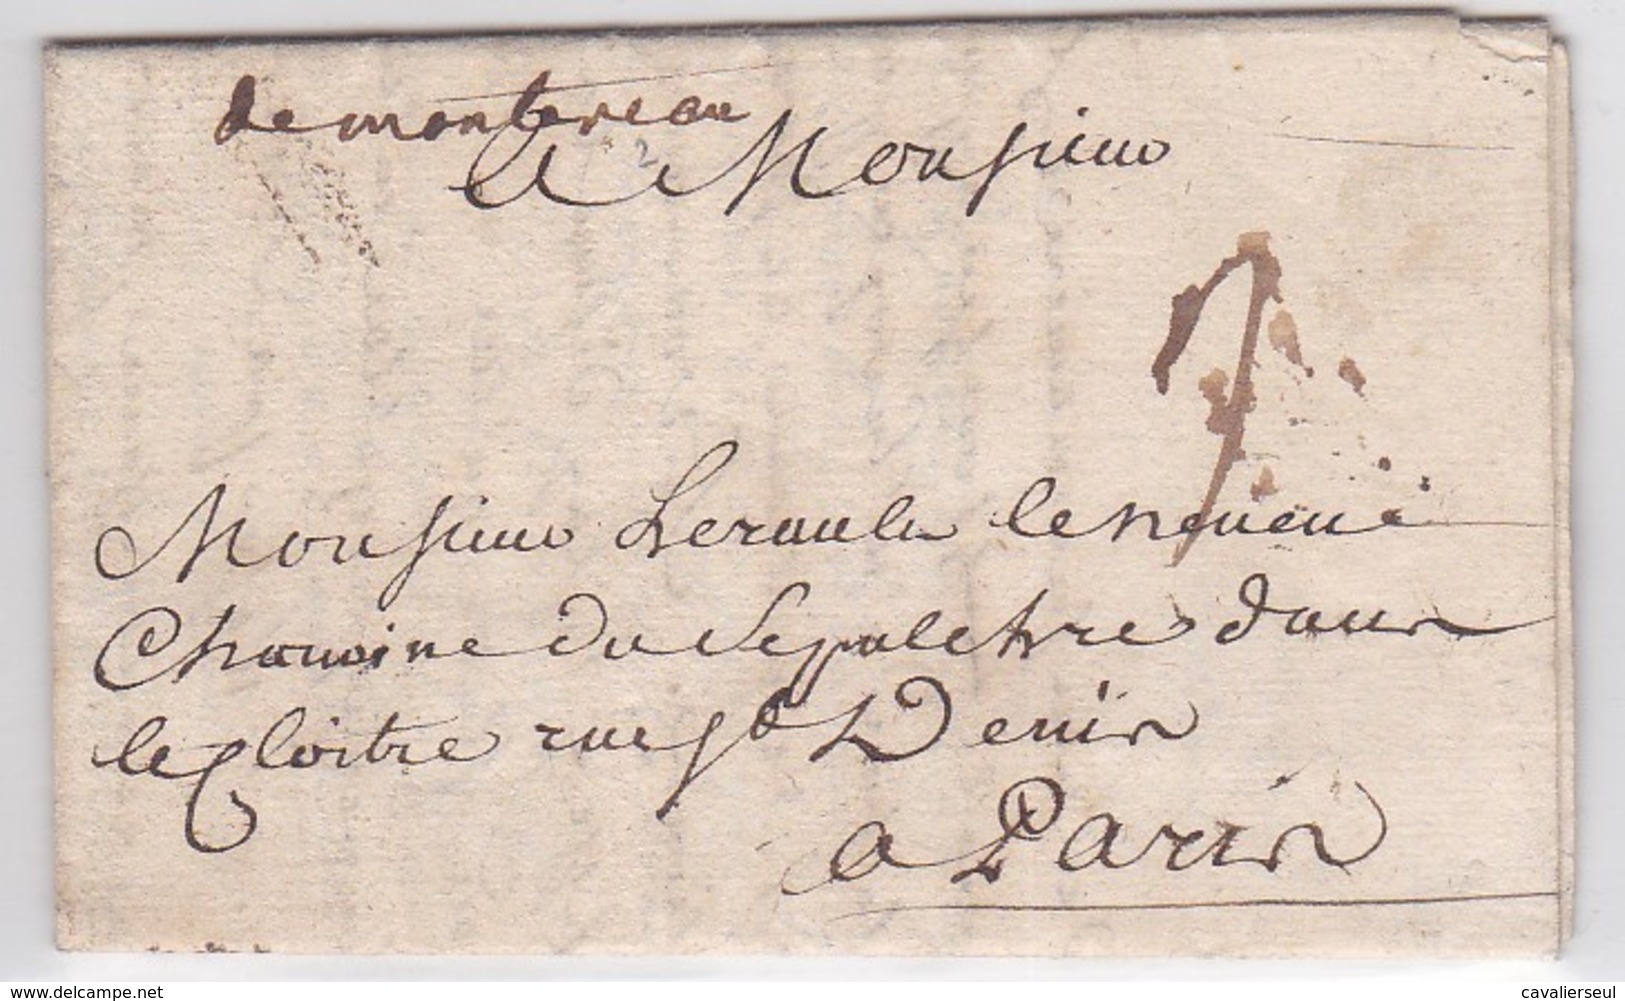 de montereau
A Monsieur
7
Monsieur Lerault le neveu
Chanoine du Sepulchre dans
le Cloitre rue St Denis
a Paris
www.delcampe.net
cavalierseul